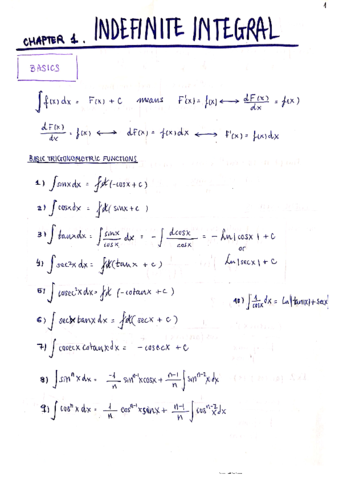 1
CHAPTER 1. INDEFINITE INTEGRAL
BASICS
∫f(x)dx = F(x) + C means F'(x) = f(x) ⟷ dF(x)/dx = f(x)
dF(x)/dx = f(x) ⟷ dF(x) = f(x)dx ⟷ F'(x) = f(x)dx
BASIC TRIGONOMETRIC FUNCTIONS
1) ∫sinxdx = (-cosx + c)
2) ∫cosxdx = (sinx + c)
3) ∫tanxdx = ∫sinx/cosx dx = -∫dcosx/cosx = -ln|cosx| + C
or
ln|secx| + C
4) ∫sec²xdx = (tanx + c)
5) ∫cosec²xdx = (-cotanx + c)
10) ∫1/cosx dx = ln|tan(x)+secx|
6) ∫secxtanxdx = (secx + c)
7) ∫cosecx cotanxdx = -cosecx + C
8) ∫sinⁿxdx = -1/n sinⁿ⁻¹xcosx + n-1/n ∫sinⁿ⁻²xdx
9) ∫cosⁿxdx = 1/n cosⁿ⁻¹xsinx + n-1/n ∫cosⁿ⁻²xdx